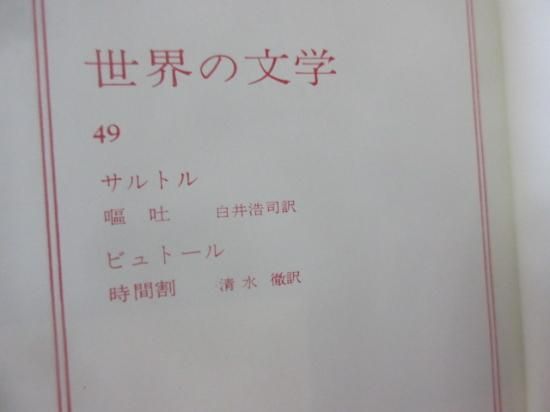 世界の文学
49
サルトル
嘔吐 白井浩司訳
ビュトール
時間割 清水 徹訳